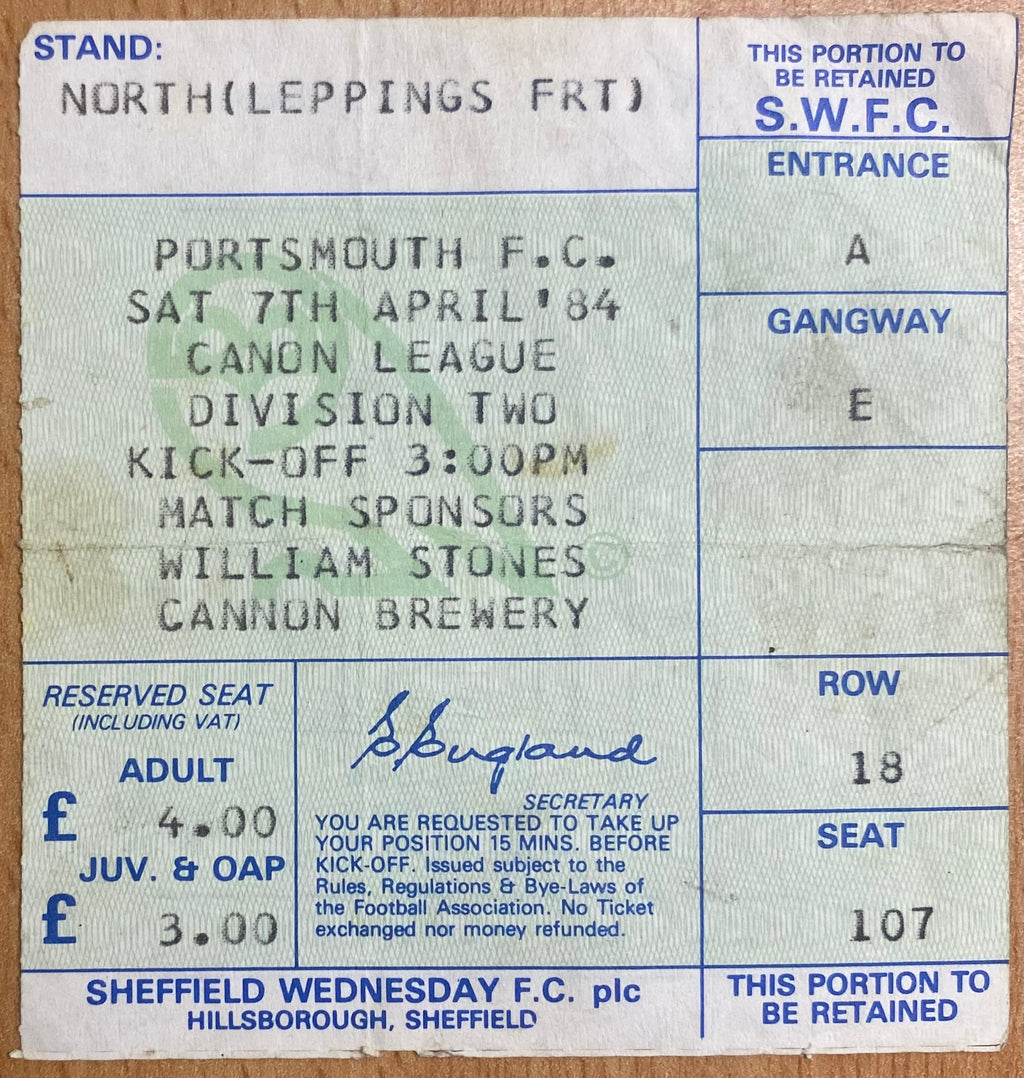 STAND:
NORTH(LEPPINGS FRT)
PORTSMOUTH F.C.
SAT 7TH APRIL'84
CANON LEAGUE
DIVISION TWO
KICK-OFF 3:00PM
MATCH SPONSORS
WILLIAM STONES
CANNON BREWERY
©
RESERVED SEAT
(INCLUDING VAT)
ADULT
£ 4.00
JUV. & OAP
£ 3.00
England
SECRETARY
YOU ARE REQUESTED TO TAKE UP
YOUR POSITION 15 MINS. BEFORE
KICK-OFF. Issued subject to the
Rules, Regulations & Bye-Laws of
the Football Association. No Ticket
exchanged nor money refunded.
SHEFFIELD WEDNESDAY F.C. plc
HILLSBOROUGH, SHEFFIELD
THIS PORTION TO
BE RETAINED
S.W.F.C.
ENTRANCE
A
GANGWAY
E
ROW
18
SEAT
107
THIS PORTION TO
BE RETAINED